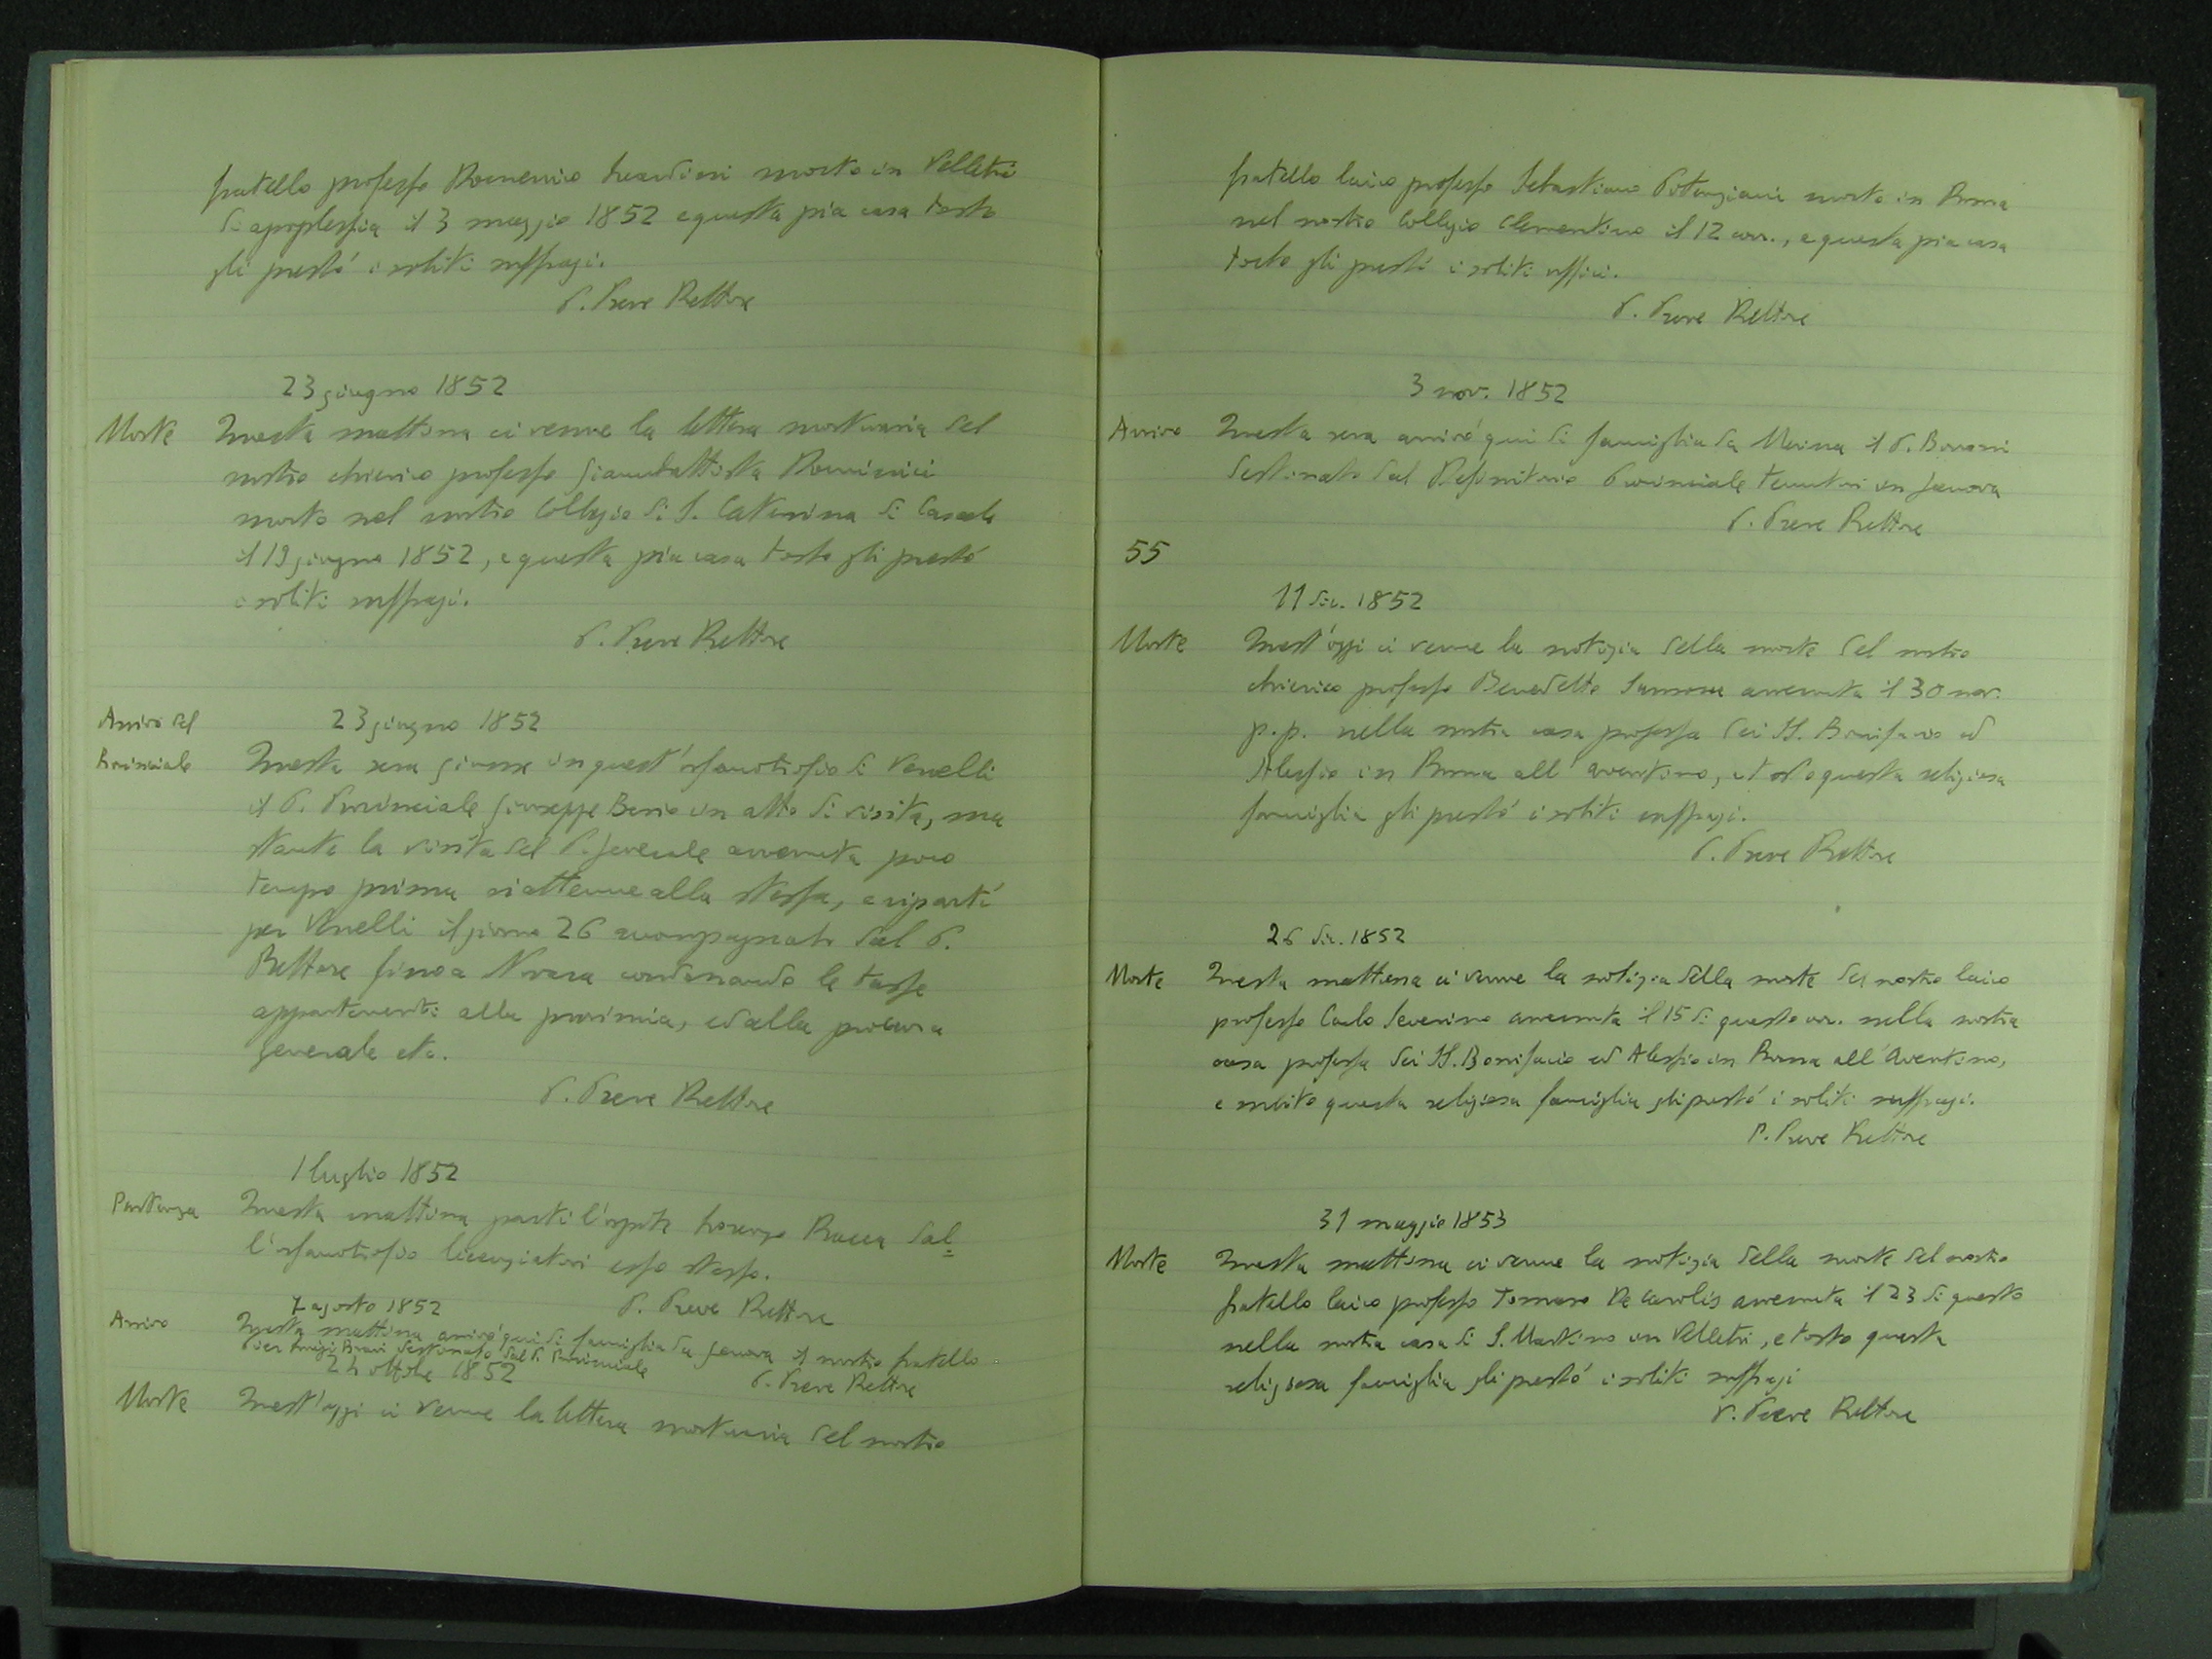 fratello professo Domenico Leardini morto in Velletri
di apoplessia il 3 maggio 1852 e questa pia casa tosto
gli prestò i soliti suffragi.
P. Preve Rettore
23 giugno 1852
Morte
Questa mattina ci venne la lettera mortuaria del
nostro chierico professo Giambattista Dominici
morto nel nostro Collegio di S. Caterina di Casale
il 19 giugno 1852, e questa pia casa tosto gli prestò
i soliti suffragi.
P. Preve Rettore
Arrivo del
Provinciale
23 giugno 1852
Questa sera giunse in quest'orfanotrofio di Vercelli
il P. Provinciale Giuseppe Besio in atto di visita, ma
stante la visita del P. Generale avvenuta poco
tempo prima si attenne alla stessa, e ripartì
per Vercelli il giorno 26 accompagnato dal P.
Rettore fino a Novara condonando le tasse
appartenenti alla provincia, ed alla procura
generale etc.
P. Preve Rettore
1 luglio 1852
Partenza
Questa mattina partì l'ospite Lorenzo Rocca dal=
l'orfanotrofio licenziatosi esso stesso.
P. Preve Rettore
7 agosto 1852
Arrivo
Questa mattina arrivò qui di famiglia da Genova il nostro fratello
Pier Luigi Bravi destinato dal P. Provinciale
P. Preve Rettore
24 ottobre 1852
Morte
Quest'oggi ci venne la lettera mortuaria del nostro
fratello laico professo Sebastiano Potenziani morto in Roma
nel nostro Collegio Clementino il 12 corr., e questa pia casa
tosto gli prestò i soliti uffici.
P. Preve Rettore
3 nov. 1852
Arrivo
Questa sera arrivò qui di famiglia da il P.
destinato dal Definitorio Provinciale tenutosi in Genova
P. Preve Rettore
55
11 dic. 1852
Morte
Quest'oggi ci venne la notizia della morte del nostro
chierico professo Benedetto avvenuta il 30 nov.
p.p. nella nostra casa professa dei SS. Bonifacio ed
Alessio in Roma all'aventino, e tosto questa religiosa
famiglia gli prestò i soliti suffragi.
P. Preve Rettore
26 dic. 1852
Morte
Questa mattina ci venne la notizia della morte del nostro laico
professo Carlo Severino avvenuta il 15 di questo corr. nella nostra
casa professa dei SS. Bonifacio ed Alessio in Roma all'Aventino,
e subito questa religiosa famiglia gli prestò i soliti suffragi.
P. Preve Rettore
31 maggio 1853
Morte
Questa mattina ci venne la notizia della morte del nostro
fratello laico professo Tomaso De Carolis avvenuta il 23 di questo
nella nostra casa di S. Martino in Velletri, e tosto questa
religiosa famiglia gli prestò i soliti suffragi
P. Preve Rettore